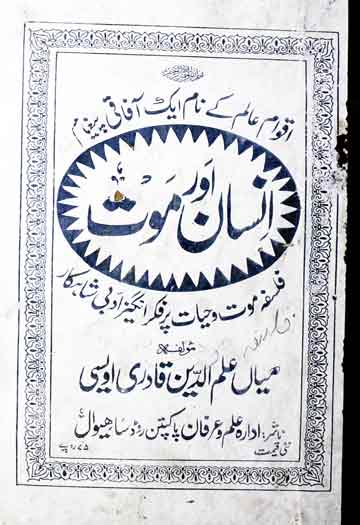 اقوام عالم کے نام ایک آفاقی پیغام
انسان اور موت
فلسفہ موت و حیات پر فکر انگیز ادبی شاہکار
مؤلفہ
میاں علم الدین قادری اویسی
ناشر: ادارہ علم و عرفان پاکپتن روڈ ساہیوال
قیمت ۷۵ روپے